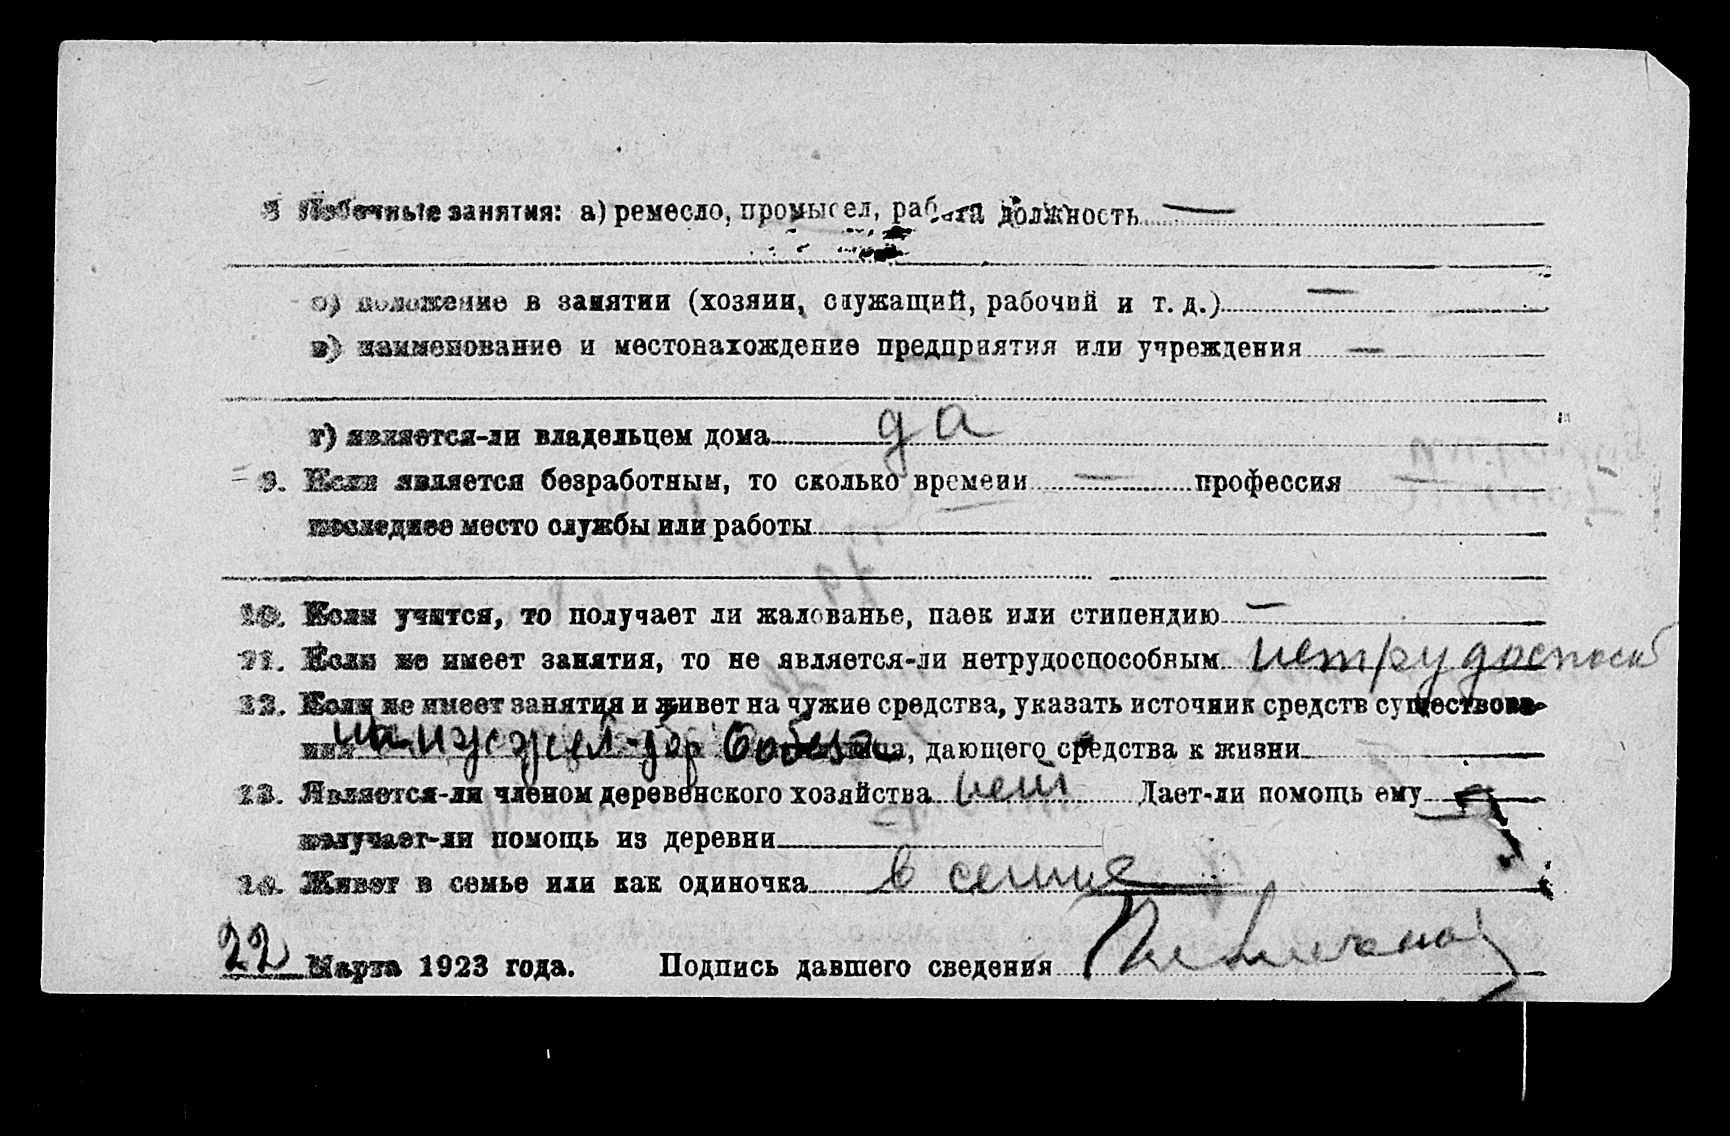 8 Побочные занятия: а) ремесло, промысел, работа должность —
б) положение в занятии (хозяин, служащий, рабочий и т. д.) —
в) наименование и местонахождение предприятия или учреждения —
г) является-ли владельцем дома да
9. Если является безработным, то сколько времени — профессия —
последнее место службы или работы
10. Если учится, то получает ли жалованье, паек или стипендию —
11. Если не имеет занятия, то не является-ли нетрудоспособным нетрудоспособ
12. Если не имеет занятия и живет на чужие средства, указать источник средств существова-
ния на иждел лица, дающего средства к жизни
13. Является-ли членом деревенского хозяйства нет Дает-ли помощь ему —
получает-ли помощь из деревни
14. Живет в семье или как одиночка в семье
22 Марта 1923 года. Подпись давшего сведения